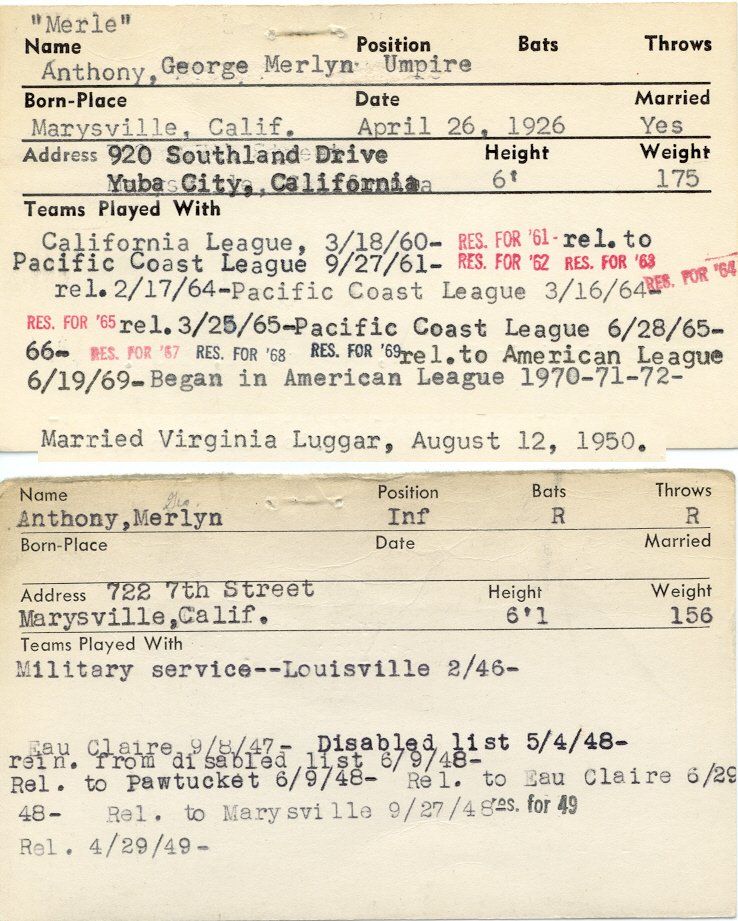 "Merle"
Name Position Bats Throws
Anthony, George Merlyn Umpire
Born-Place Date Married
Marysville, Calif. April 26, 1926 Yes
Address 920 Southland Drive Height Weight
Yuba City, California 6' 175
Teams Played With
California League, 3/18/60- RES. FOR '61- rel. to
Pacific Coast League 9/27/61- RES. FOR '62 RES. FOR '63
rel. 2/17/64-Pacific Coast League 3/16/64- RES. FOR '64
RES. FOR '65 rel. 3/25/65-Pacific Coast League 6/28/65-
66- RES. FOR '67 RES. FOR '68 RES. FOR '69 rel. to American League
6/19/69-Began in American League 1970-71-72-
Married Virginia Luggar, August 12, 1950.
Name Position Bats Throws
Geo.
Anthony,Merlyn Inf R R
Born-Place Date Married
Address 722 7th Street Height Weight
Marysville,Calif. 6'1 156
Teams Played With
Military service--Louisville 2/46-
Eau Claire 9/8/47- Disabled list 5/4/48-
rein. from disabled list 6/9/48-
Rel. to Pawtucket 6/9/48- Rel. to Eau Claire 6/29
48- Rel. to Marysville 9/27/48 res. for 49
Rel. 4/29/49-